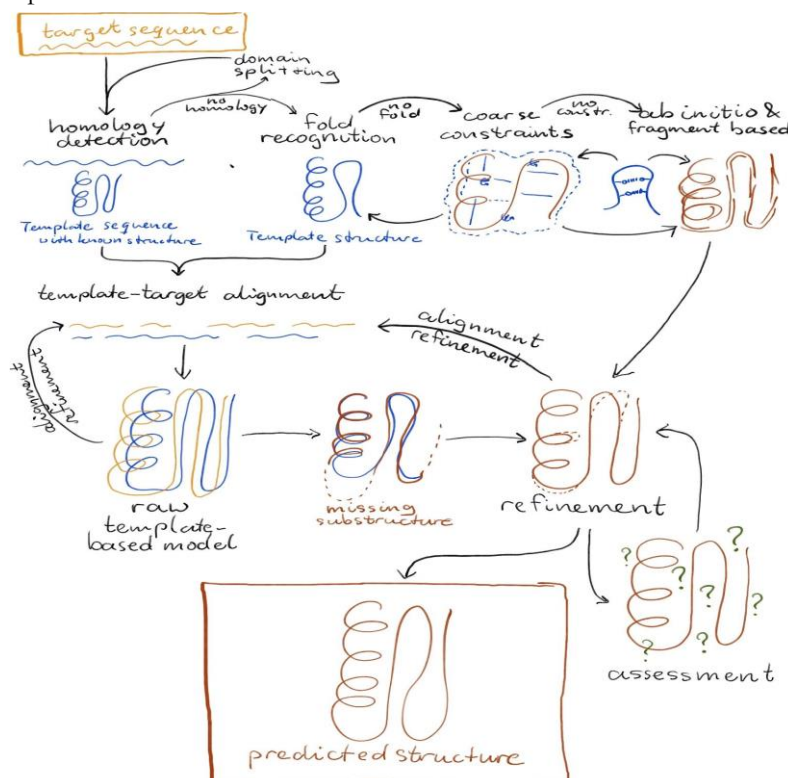 target sequence
domain
splitting
homology
detection
no
homology
fold
recognition
no
fold
coarse
constraints
no
constr.
ab initio &
fragment based
Template sequence
with known structure
Template structure
template-target alignment
alignment
refinement
alignment
refinement
raw
template-
based model
missing
substructure
refinement
?
?
?
?
?
?
?
assessment
predicted structure